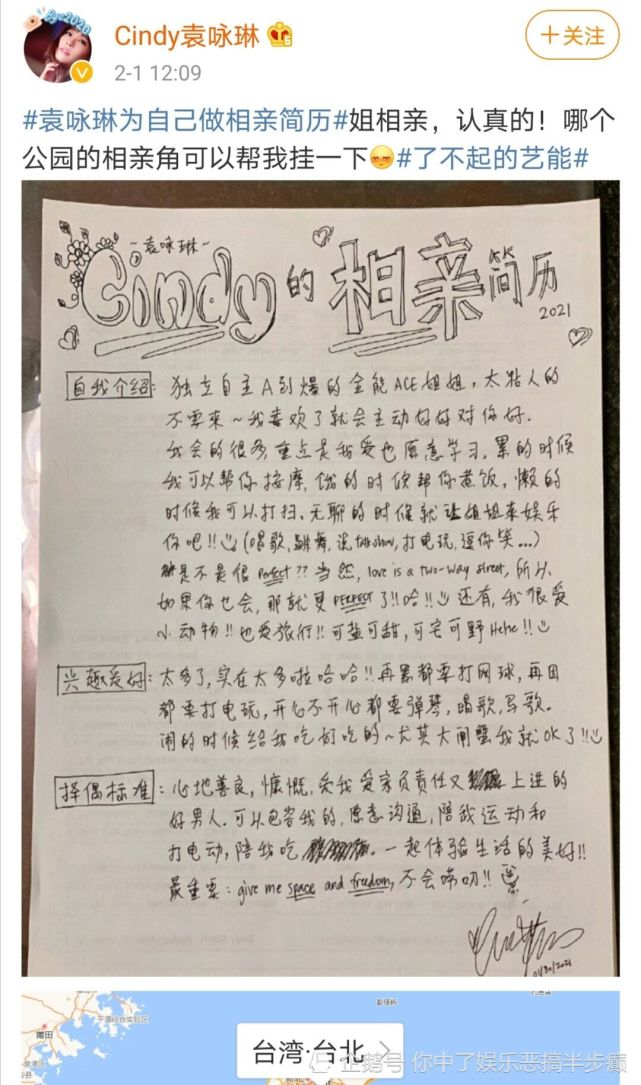 Cindy袁咏琳
2-1 12:09
+关注
#袁咏琳为自己做相亲简历#姐相亲，认真的！哪个
公园的相亲角可以帮我挂一下#了不起的艺能#
~袁咏琳~
Cindy的相亲简历
2021
自我介绍：独立自主A到爆的全能ACE姐姐，太黏人的
不要来~我喜欢了就会主动好好对你好.
我会的很多重点是我爱也愿意学习.累的时候
我可以帮你按摩，饿的时候帮你煮饭，懒的
时候我可以打扫，无聊的时候就让姐姐来娱乐
你吧!!(唱歌,跳舞,说talkshow,打电玩,逗你笑...)
是不是很perfect??当然,love is a two-way street,所以
如果你也会,那就更PERFECT了!!哈!!还有,我很爱
小动物!!也爱旅行!!可盐可甜,可宅可野Hehe!!
兴趣爱好：太多了,实在太多啦哈哈!!再累都要打网球,再困
都要打电玩,开心不开心都要弹琴,唱歌,写歌.
闹的时候给我吃好吃的~尤其大闸蟹我就OK了!!
择偶标准：心地善良,慷慨,爱我爱家负责任又上进的
好男人.可以包容我的,愿意沟通,陪我运动和
打电动,陪我吃.一起体验生活的美好!!
最重要:give me space and freedom,不会唠叨!!
01/30/2021
莆田
台湾·台北
企鹅号 你中了娱乐恶搞半步癫